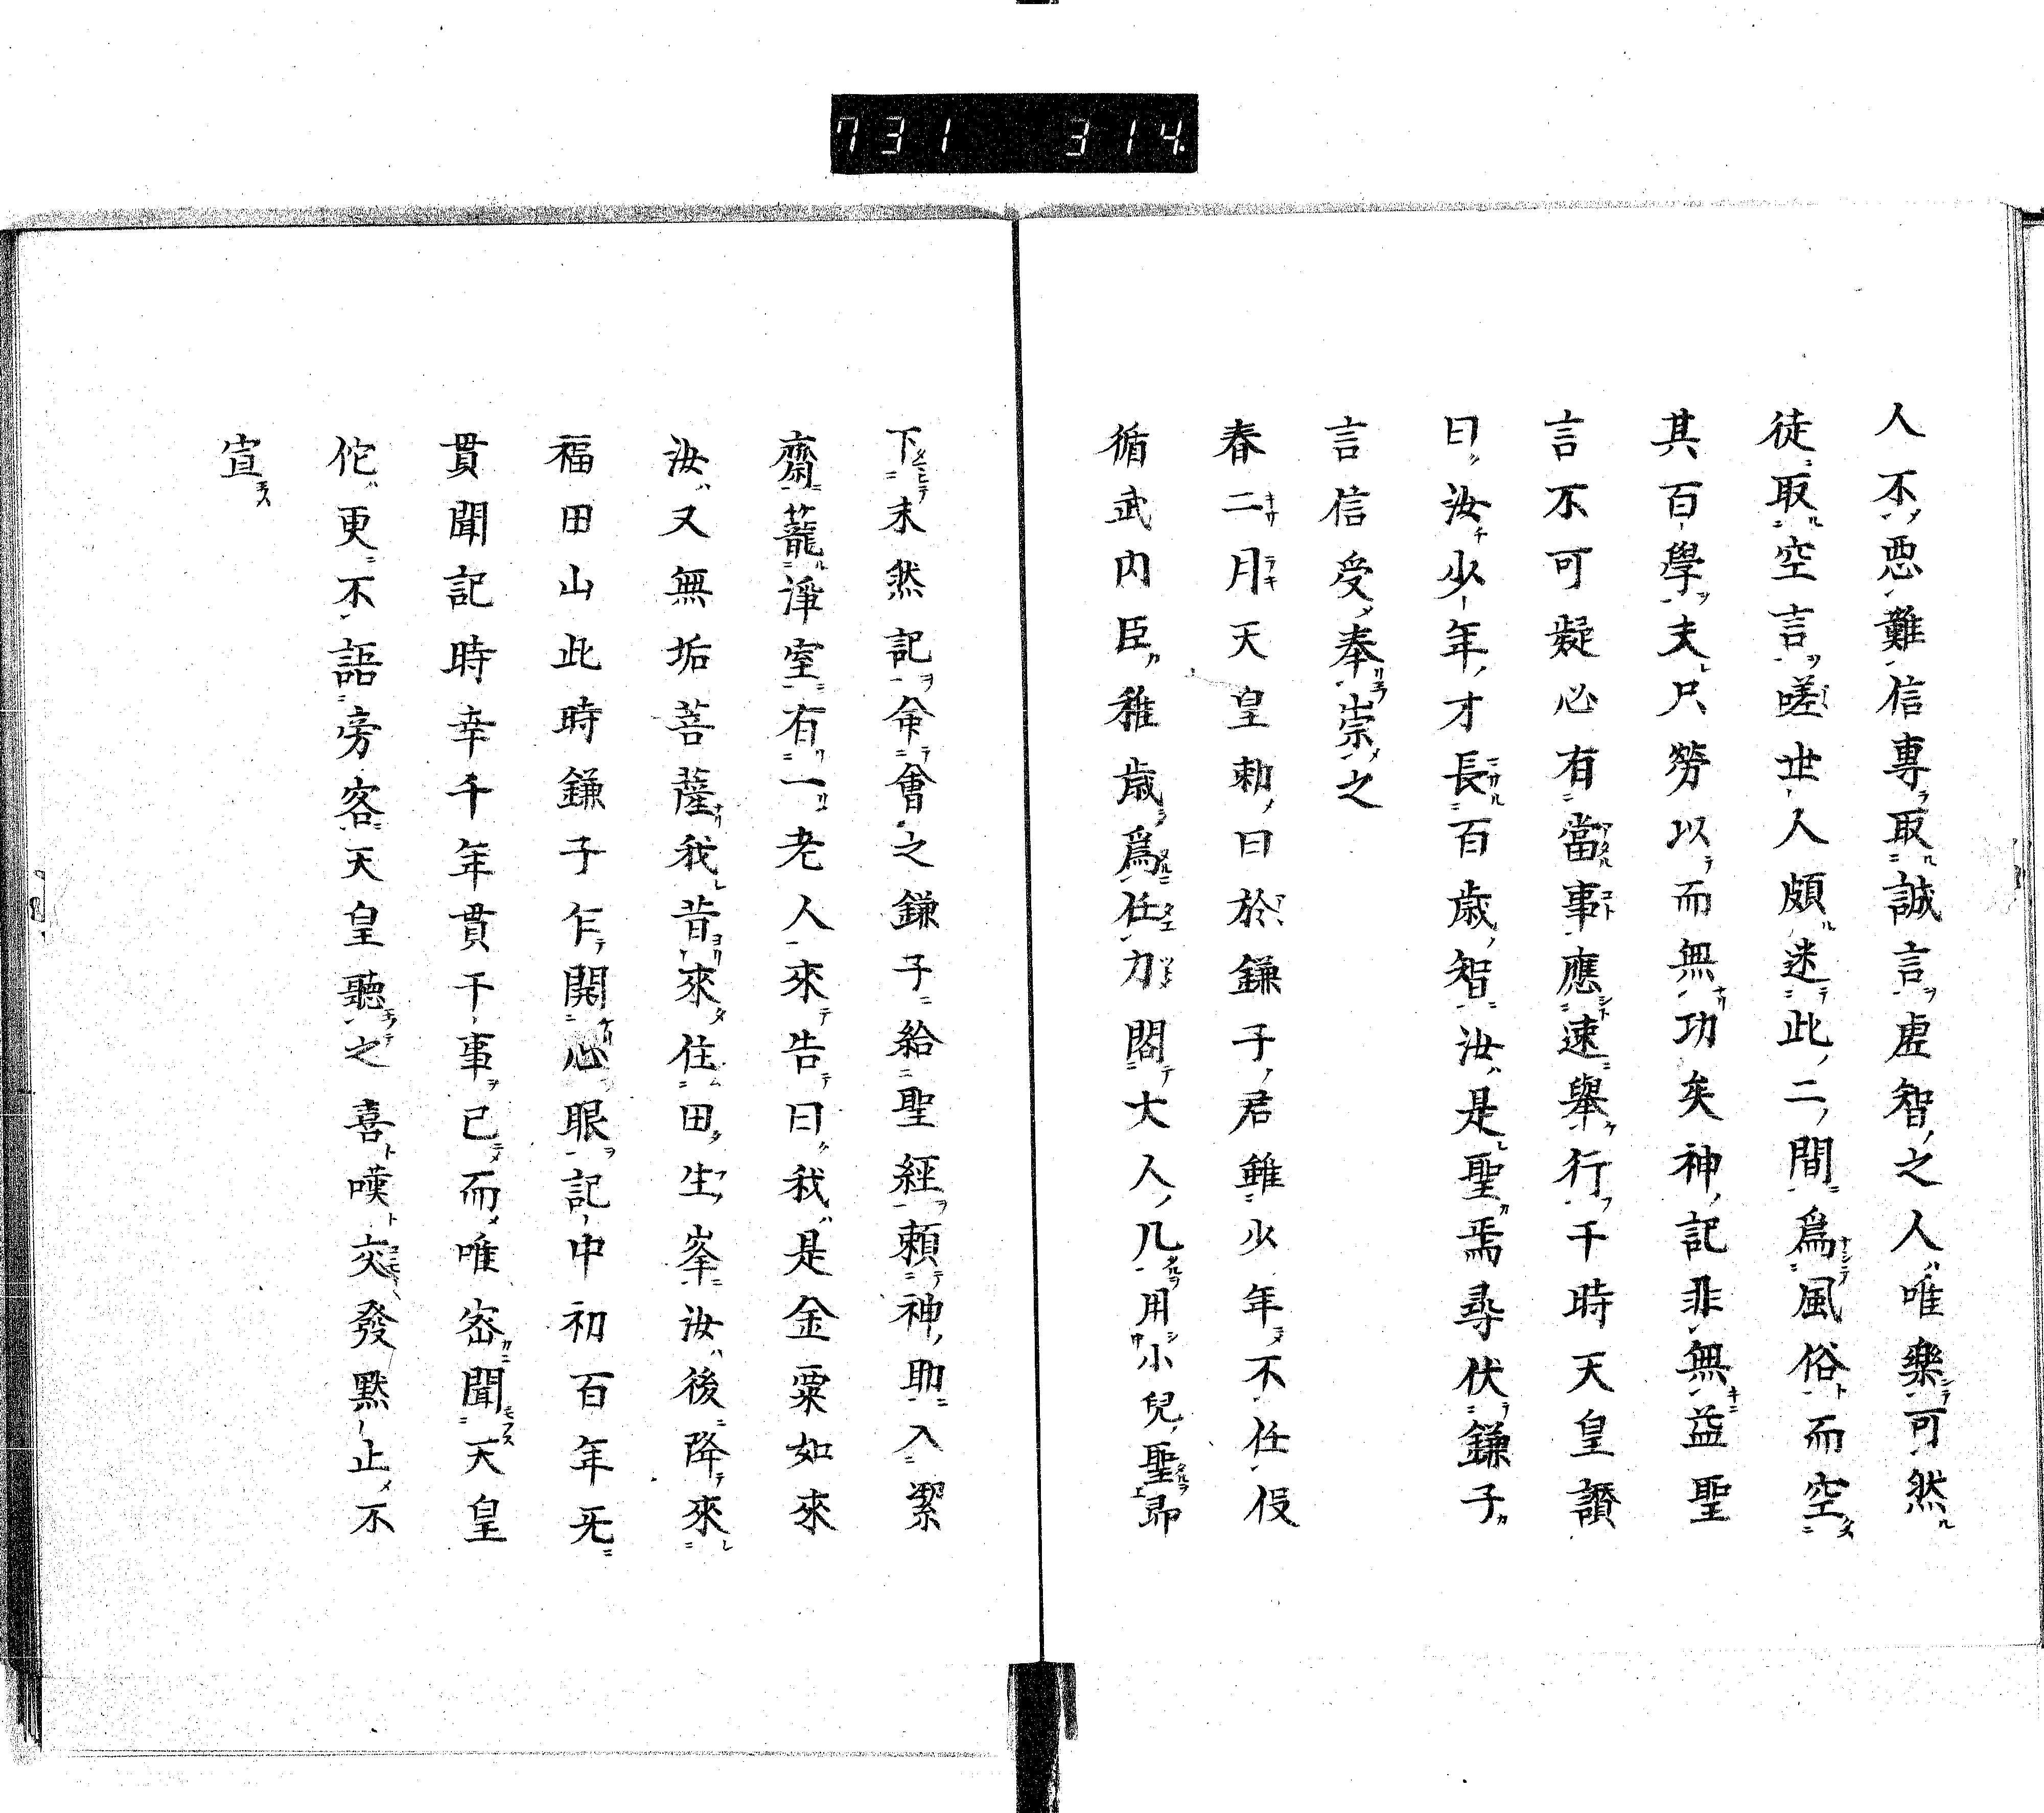 731 314
人不惡難信專取誠言虛智之人唯樂可然
徒取空言嗟世人頗迷此二間爲風俗而空
其百學夫尺勞以而無功矣神記非無益聖
言不可疑必有當事應速舉行于時天皇讃
曰汝少年才長百歳智汝是聖焉尋伏鎌子
言信受奉崇之
春二月天皇勅曰於鎌子君雖少年不任役
循武内臣稚歳爲任力閣大人几用小兒聖昴
下末然記命會之鎌子給聖經頼神助入潔
齋蘢淨室有一老人來告曰我是金粟如來
汝又無垢菩薩我昔來住田生峯汝後降來
福田山此時鎌子乍開心眼記中初百年旡
貫聞記時幸千年貫千事已而唯宻聞天皇
佗更不語旁客天皇聽之喜嘆交發默止不
宣